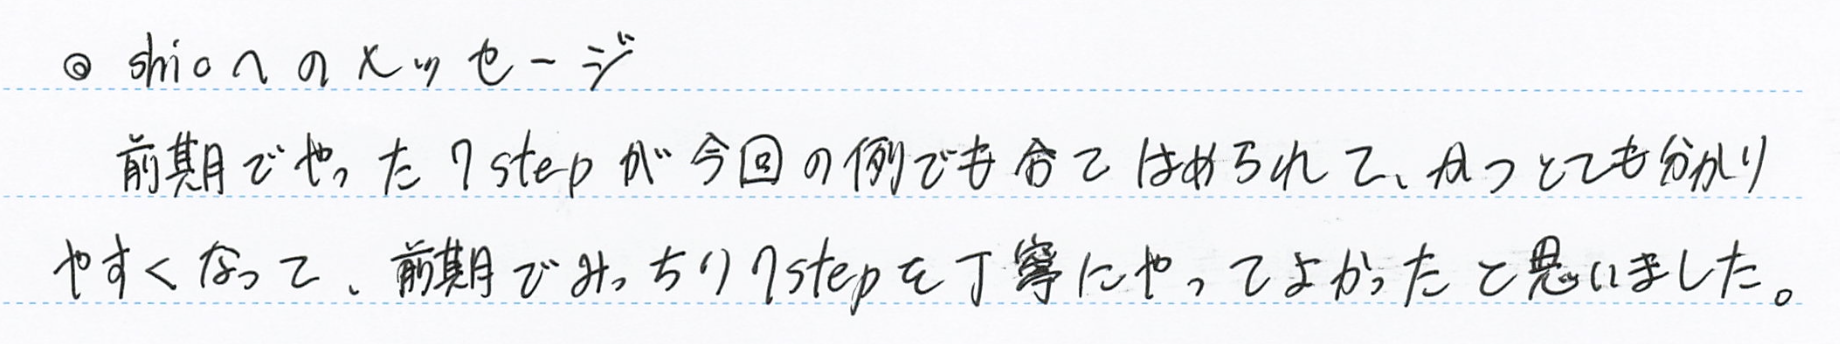 ◎ shioへのメッセージ
前期でやった7stepが今回の例でも合てはめられて、かつとても分かり
やすくなって、前期でみっちり7stepを丁寧にやってよかったと思いました。